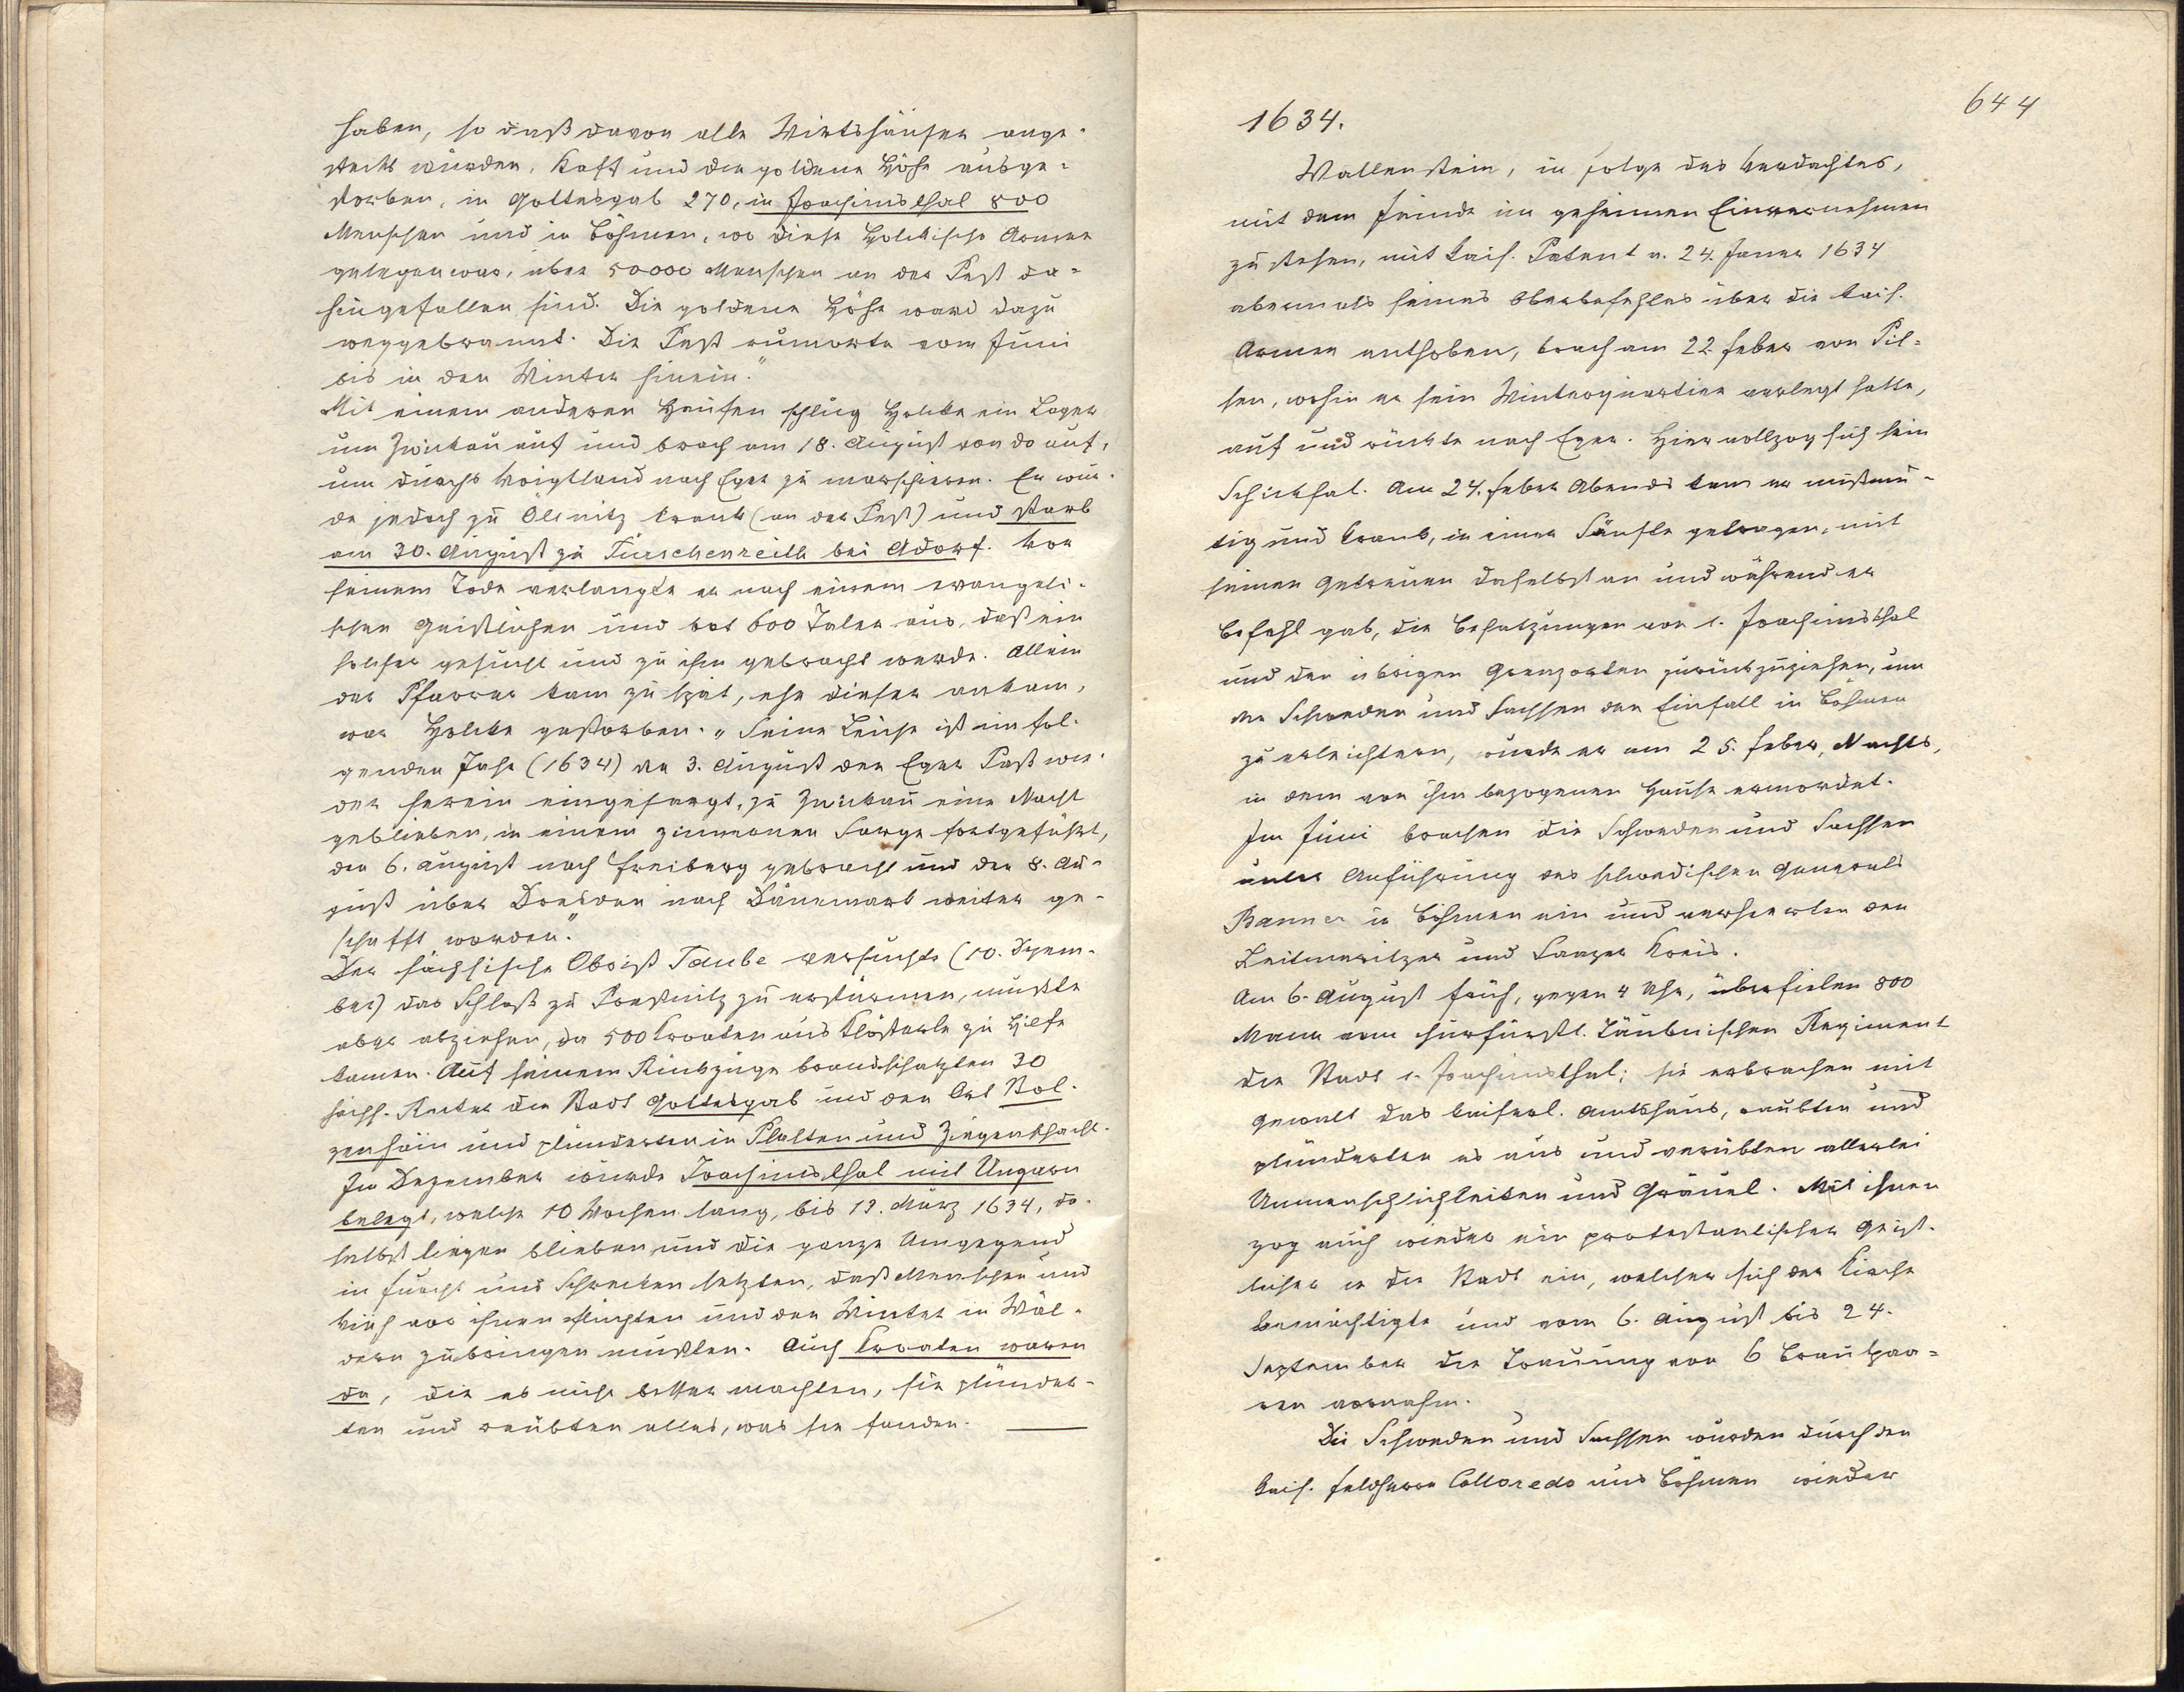 haben, so daß davon alle Wirtshäuser ange-
steckt wurden, Kaff und die goldene Höhe ausge-
storben, in Gottesgab 270, in Joachimsthal 800
Menschen und in Böhmen, wo diese Holckische Armee
gelegen war, über 50000 Menschen an der Pest da-
hingefallen sind. Die goldene Höhe ward dazu
weggebrannt. Die Pest rumorte vom Juni
bis in den Winter hinein."
Mit einem anderen Haufen schlug Holcke ein Lager
um Zwickau auf und brach am 18. August von da auf,
um durchs Voigtland nach Eger zu marschieren. Er wur-
de jedoch zu Ölsnitz krank (an der Pest) und starb
am 30. August zu Türschenreith bei Adorf. Vor
seinem Tode verlangte er nach einem evangeli-
schen Geistlichen und bot 600 Taler aus, daß ein
solcher gesucht und zu ihm gebracht werde. Allein
der Pfarrer kam zu spät, ehe dieser ankam,
war Holcke gestorben. „Seine Leiche ist im fol-
genden Jahr (1634) den 3. August den Eger Paß wie-
der herein eingesargt, zu Zwickau eine Nacht
geblieben, in einem zinnernen Sarge fortgeführt,
den 6. August nach Freiberg gebracht und den 8. Au-
gust über Dresden nach Dänemark weiter ge-
schafft worden."
Der sächsische Obrist Taube versuchte (10. Dezem-
ber) das Schloß zu Preßnitz zu erstürmen, mußte
aber abziehen, da 500 Kroaten aus Klösterle zu Hilfe
kamen. Auf seinem Rückzuge brandschatzten 30
sächs. Reiter die Stadt Gottesgab und den Ort Stol-
zenhain und plünderten in Platten und Ziegenschacht.
Im Dezember wurde Joachimsthal mit Ungarn
belegt, welche 10 Wochen lang, bis 13. März 1634, da-
selbst liegen blieben und die ganze Umgegend
in Furcht und Schrecken setzten, daß Menschen und
Vieh vor ihnen flüchten und den Winter in Wäl-
dern zubringen mußten. Auch Kroaten waren
da, die es nicht besser machten, sie plünder-
ten und raubten alles, was sie fanden.
644
1634.
Wallenstein, in Folge des Verdachtes,
mit dem Feinde im geheimen Einvernehmen
zu stehen, mit kais. Patent v. 24. Jäner 1634
abermals seines Oberbefehles über die kais.
Armee enthoben, brach am 22. Feber von Pil-
sen, wohin er sein Winterquartier verlegt hatte,
auf und rückte nach Eger. Hier vollzog sich sein
Schicksal. Am 24. Feber Abends kam er mißmu-
tig und krank, in einer Sänfte getragen, mit
seinen Getreuen daselbst an und während er
Befehl gab, die Besatzungen von S. Joachimsthal
und den übrigen Grenzorten zurückzuziehen, um
den Schweden und Sachsen den Einfall in Böhmen
zu erleichtern, wurde er am 25. Feber, Nachts,
in dem von ihm bezogenen Hause ermordet.
Im Juni brachen die Schweden und Sachsen
unter Anführung des schwedischen Generals
Banner in Böhmen ein und verheerten den
Leitmeritzer und Saazer Kreis.
Am 6. August früh, gegen 4 Uhr, überfielen 800
Mann vom churfürstl. Täubnischen Regiment
die Stadt S. Joachimsthal; sie erbrachen mit
Gewalt das kaiserl. Amtshaus, raubten und
plünderten es aus und verübten allerlei
Unmenschlichkeiten und Gräuel. Mit ihnen
zog auch wieder ein protestantischer Geist-
licher in die Stadt ein, welcher sich der Kirche
bemächtigte und vom 6. August bis 24.
September die Trauung von 6 Brautpaa-
ren vornahm.
Die Schweden und Sachsen wurden durch den
kais. Feldherrn Colloredo aus Böhmen wieder